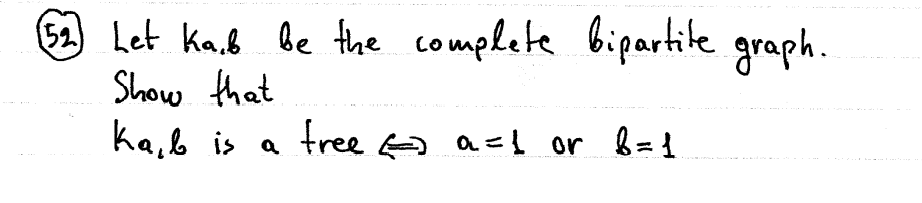 (52) Let Ka,b be the complete bipartite graph.
Show that
Ka,b is a tree ⇔ a=1 or b=1